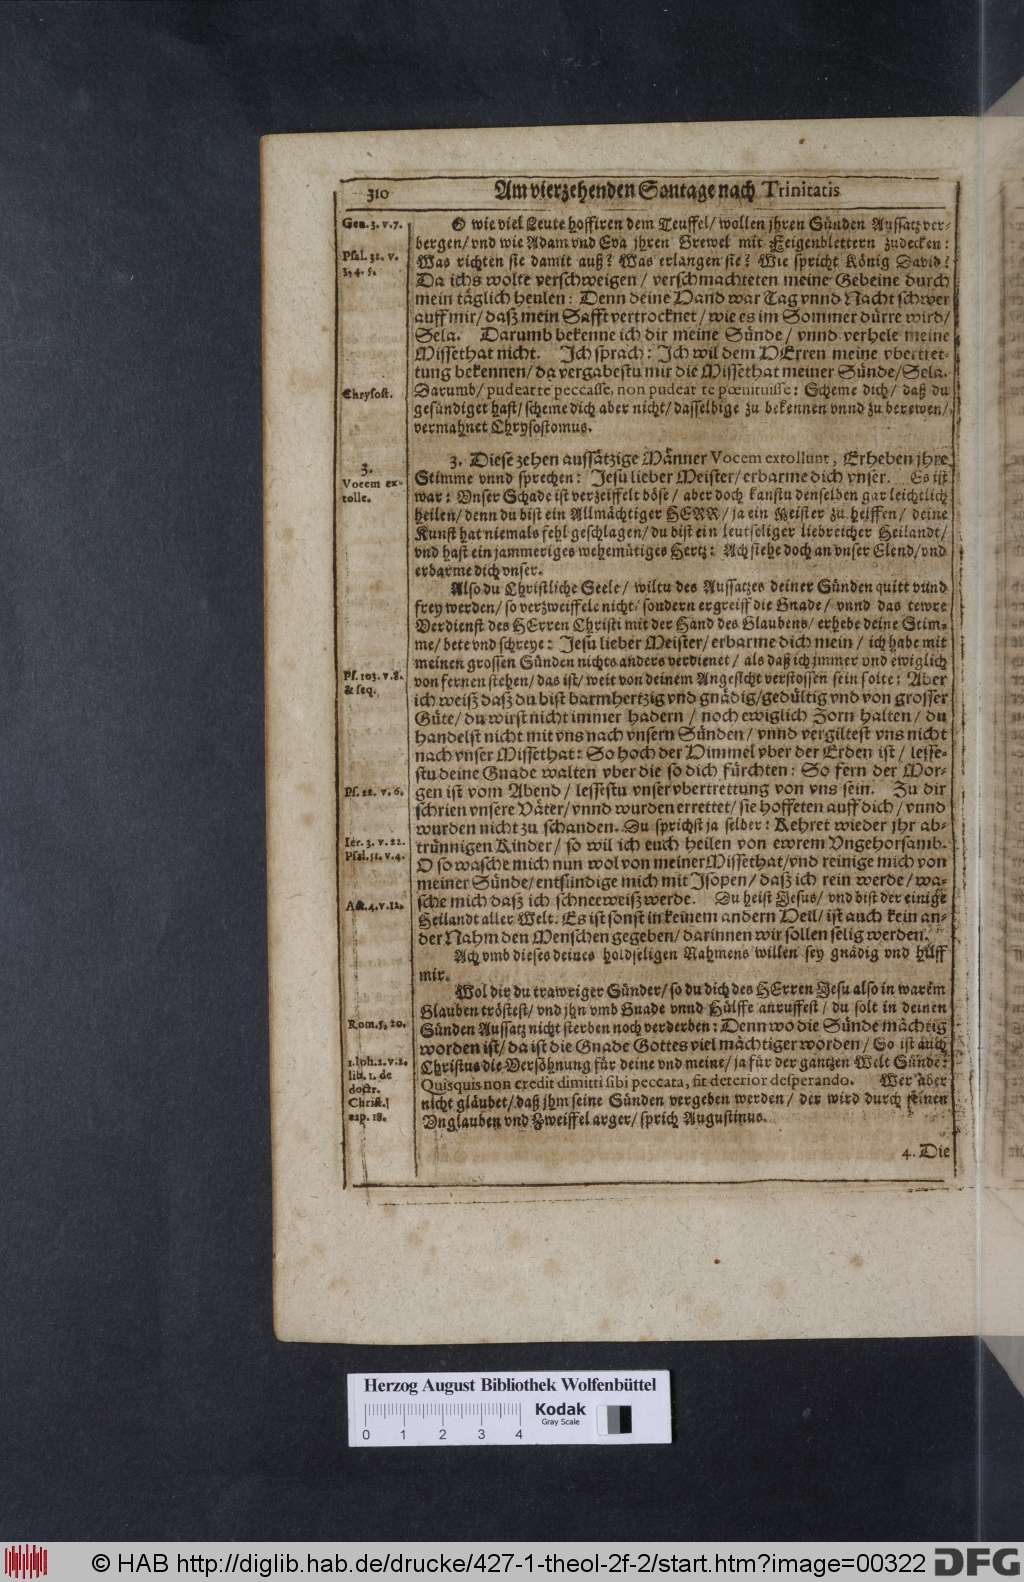 310 Am vierzehenden Sontage nach Trinitatis
Gen. 3. v. 7.
O wie viel Leute hoffiren dem Teuffel/ wollen jhren Sünden Aussatz ver-
bergen/ vnd wie Adam vnd Eva jhren Grewel mit Feigenblettern zudecken:
Psal. 32. v.
3, 4. 5.
Was richten sie damit auß? Was erlangen sie? Wie spricht König David?
Da ichs wolte verschweigen/ verschmachteten meine Gebeine durch
mein täglich heulen: Denn deine Hand war Tag vnnd Nacht schwer
auff mir/ daß mein Safft vertrocknet/ wie es im Sommer dürre wird/
Sela. Darumb bekenne ich dir meine Sünde/ vnnd verhele meine
Missethat nicht. Ich sprach: Ich wil dem HErren meine vbertret-
tung bekennen/ da vergabestu mir die Missethat meiner Sünde/ Sela.
Chrysost.
Darumb/ pudeat te peccasse, non pudeat te pœnituisse: Scheme dich/ daß du
gesündiget hast/ scheme dich aber nicht/ dasselbige zu bekennen vnnd zu berewen/
vermahnet Chrysostomus.
3.
Vocem ex-
tolle.
3. Diese zehen aussätzige Männer Vocem extollunt, Erheben jhre
Stimme vnnd sprechen: Jesu lieber Meister/ erbarme dich vnser. Es ist
war: Vnser Schade ist verzeiffelt böse/ aber doch kanstu denselben gar leichtlich
heilen/ denn du bist ein Allmächtiger HERR/ ja ein Meister zu helffen/ deine
Kunst hat niemals fehl geschlagen/ du bist ein leutseliger liebreicher Heilandt/
vnd hast ein jammeriges wehemütiges Hertz: Ach siehe doch an vnser Elend/ vnd
erbarme dich vnser.
Also du Christliche Seele/ wiltu des Aussatzes deiner Sünden quitt vnnd
frey werden/ so verzweiffele nicht/ sondern ergreiff die Gnade/ vnnd das tewre
Verdienst des HErren Christi mit der Hand des Glaubens/ erhebe deine Stim-
me/ bete vnd schreye: Jesu lieber Meister/ erbarme dich mein/ ich habe mit
meinen grossen Sünden nichts anders verdienet/ als daß ich jmmer vnd ewiglich
Ps. 103. v. 8.
& seq.
von fernen stehen/ das ist/ weit von deinem Angesicht verstossen sein solte: Aber
ich weiß daß du bist barmhertzig vnd gnädig/ gedültig vnd von grosser
Güte/ du wirst nicht immer hadern/ noch ewiglich Zorn halten/ du
handelst nicht mit vns nach vnsern Sünden/ vnnd vergiltest vns nicht
nach vnser Missethat: So hoch der Himmel vber der Erden ist/ lesse-
stu deine Gnade walten vber die so dich fürchten: So fern der Mor-
Ps. 22. v. 6.
gen ist vom Abend/ lessestu vnser vbertrettung von vns sein. Zu dir
schrien vnsere Väter/ vnnd wurden errettet/ sie hoffeten auff dich/ vnnd
wurden nicht zu schanden. Du sprichst ja selber: Kehret wieder jhr ab-
Jer. 3. v. 22.
Psal. 51. v. 4.
trünnigen Kinder/ so wil ich euch heilen von ewrem Vngehorsamb.
O so wasche mich nun wol von meiner Missethat/ vnd reinige mich von
meiner Sünde/ entsündige mich mit Isopen/ daß ich rein werde/ wa-
Act. 4. v. 12.
sche mich daß ich schneeweiß werde. Du heist Jesus/ vnd bist der einige
Heilandt aller Welt. Es ist sonst in keinem andern Heil/ ist auch kein an-
der Nahm den Menschen gegeben/ darinnen wir sollen selig werden.
Ach vmb dieses deines holdseligen Nahmens willen sey gnädig vnd hilff
mir.
Wol dir du trawriger Sünder/ so du dich des HErren Jesu also in warem
Glauben tröstest/ vnd jhn vmb Gnade vnnd Hülffe anruffest/ du solt in deinen
Rom. 5, 20.
Sünden Aussatz nicht sterben noch verderben: Denn wo die Sünde mächtig
worden ist/ da ist die Gnade Gottes viel mächtiger worden/ So ist auch
1. Joh. 2. v. 2.
lib. 1. de
doctr.
Christ.
cap. 18.
Christus die Versöhnung für deine vnd meine/ ja für der gantzen Welt Sünde:
Quisquis non credit dimitti sibi peccata, fit deterior desperando. Wer aber
nicht gläubet/ daß jhm seine Sünden vergeben werden/ der wird durch seinen
Vnglauben vnd Zweiffel arger/ sprich Augustinus.
4. Die
Herzog August Bibliothek Wolfenbüttel
0 1 2 3 4
Kodak
Gray Scale
© HAB http://diglib.hab.de/drucke/427-1-theol-2f-2/start.htm?image=00322 DFG